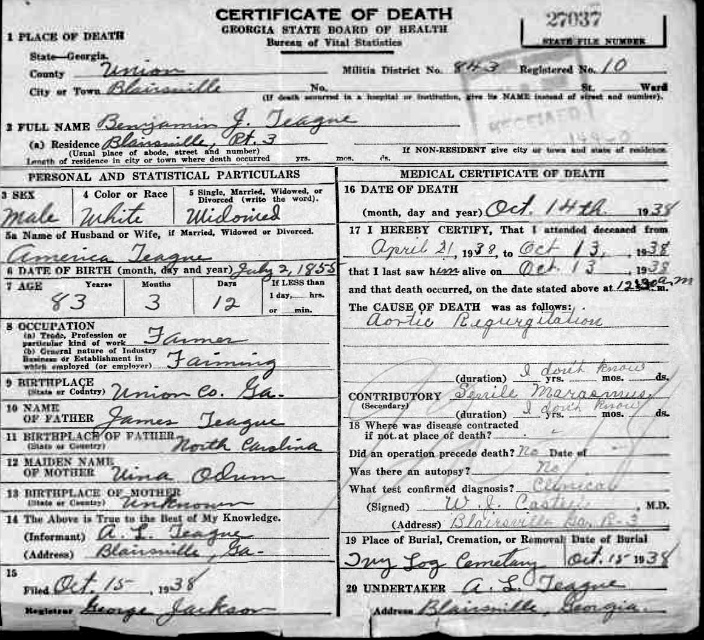 CERTIFICATE OF DEATH
GEORGIA STATE BOARD OF HEALTH
Bureau of Vital Statistics
27037
STATE FILE NUMBER
1 PLACE OF DEATH
State—Georgia.
County Union Militia District No. 843 Registered No. 10
City or Town Blairsville No. St. Ward
(If death occurred in a hospital or institution, give its NAME instead of street and number).
RECEIVED
2 FULL NAME Benjamin J. Teague
(a) Residence Blairsville, Rt. 3
(Usual place of abode, street and number) If NON-RESIDENT give city or town and state of residence.
Length of residence in city or town where death occurred yrs. mos. ds.
PERSONAL AND STATISTICAL PARTICULARS
3 SEX 4 Color or Race 5 Single, Married, Widowed, or Divorced (write the word).
Male White Widowed
5a Name of Husband or Wife, if Married, Widowed or Divorced.
America Teague
6 DATE OF BIRTH (month, day and year) July 2, 1855
7 AGE Years Months Days If LESS than
1 day, hrs.
or min.
83 3 12
8 OCCUPATION
(a) Trade, Profession or particular kind of work Farmer
(b) General nature of Industry
Business or Establishment in
which employed (or employer) Farming
9 BIRTHPLACE
(State or Country) Union Co. Ga.
10 NAME
OF FATHER James Teague
11 BIRTHPLACE OF FATHER
(State or Country) North Carolina
12 MAIDEN NAME
OF MOTHER Odum
13 BIRTHPLACE OF MOTHER
(State or Country) Unknown
14 The Above is True to the Best of My Knowledge.
(Informant) A. L. Teague
(Address) Blairsville, Ga.
15
Filed Oct. 15, 1938
Registrar George Jackson
MEDICAL CERTIFICATE OF DEATH
16 DATE OF DEATH
(month, day and year) Oct. 14th. 1938
17 I HEREBY CERTIFY, That I attended deceased from
April 21, 1938, to Oct 13, 1938
that I last saw him alive on Oct. 13, 1938
and that death occurred, on the date stated above at 12:30 a.m.
The CAUSE OF DEATH was as follows:
Aortic Regurgitation
(duration) I don't know yrs. mos. ds.
CONTRIBUTORY Senile Marasmus
(Secondary)
(duration) I don't know yrs. mos. ds.
18 Where was disease contracted
if not at place of death?
Did an operation precede death? No Date of
Was there an autopsy? No
What test confirmed diagnosis? Clinical
(Signed) M.D.
(Address) Blairsville Ga. R-3
19 Place of Burial, Cremation, or Removal Date of Burial
Ivy Log Cemetary Oct. 15 1938
20 UNDERTAKER A. L. Teague
Address Blairsville, Georgia.